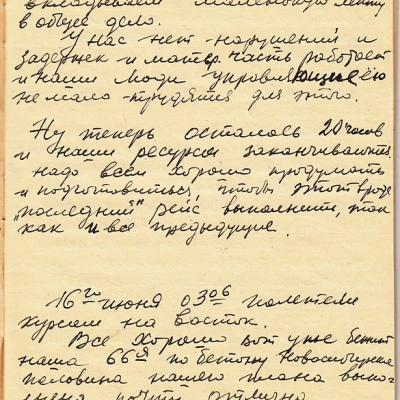 вкладываем маленькую лепту
в общее дело.
У нас нет нарушений и
задержек и матер. часть работает
и наши люди управляющие ею
не мало трудятся для этого.
Ну теперь осталось 20 часов
и наши ресурсы заканчиваются
надо всем хорошо продумать
и подготовиться, чтобы этот вроде
"последний" рейс выполнить, так
как и все предыдущие.
16го июня 03 06 полетели
курсом на восток.
Все хорошо вот уже бежит
наша 66я по бетону Новосибирска
половина нашего плана выпол-
нена почти отлично